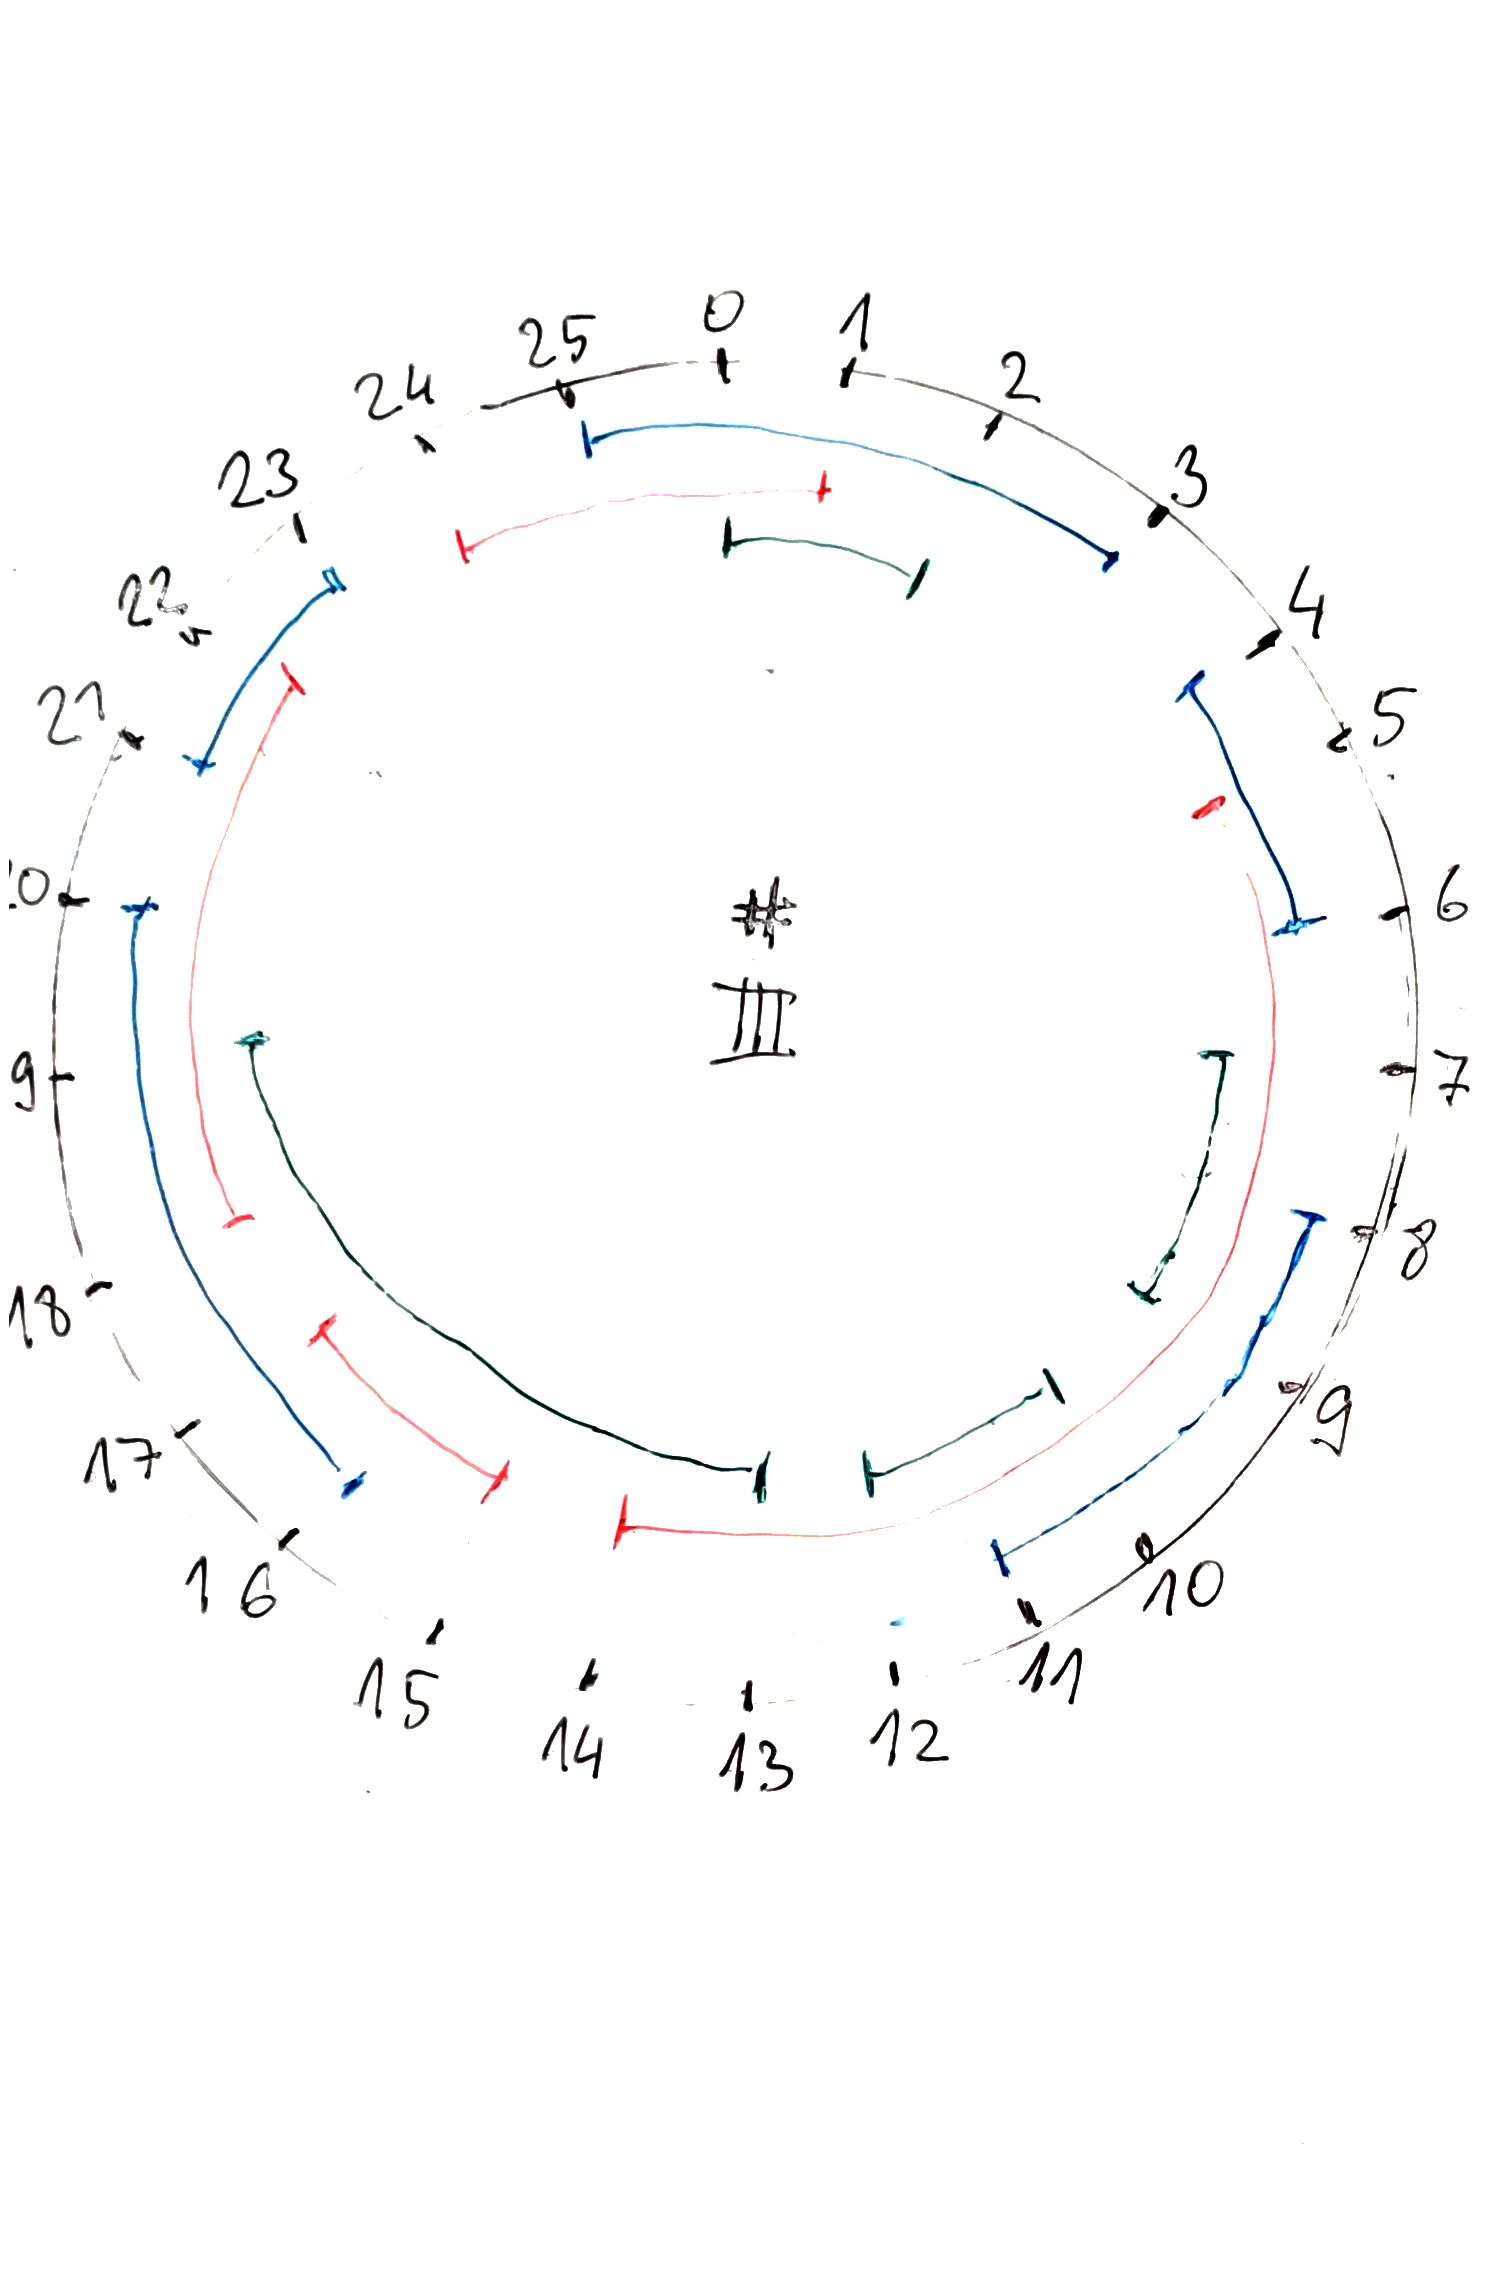 0
1
2
3
4
5
6
7
8
9
10
11
12
13
14
15
16
17
18
9
0
21
22
23
24
25
#
III